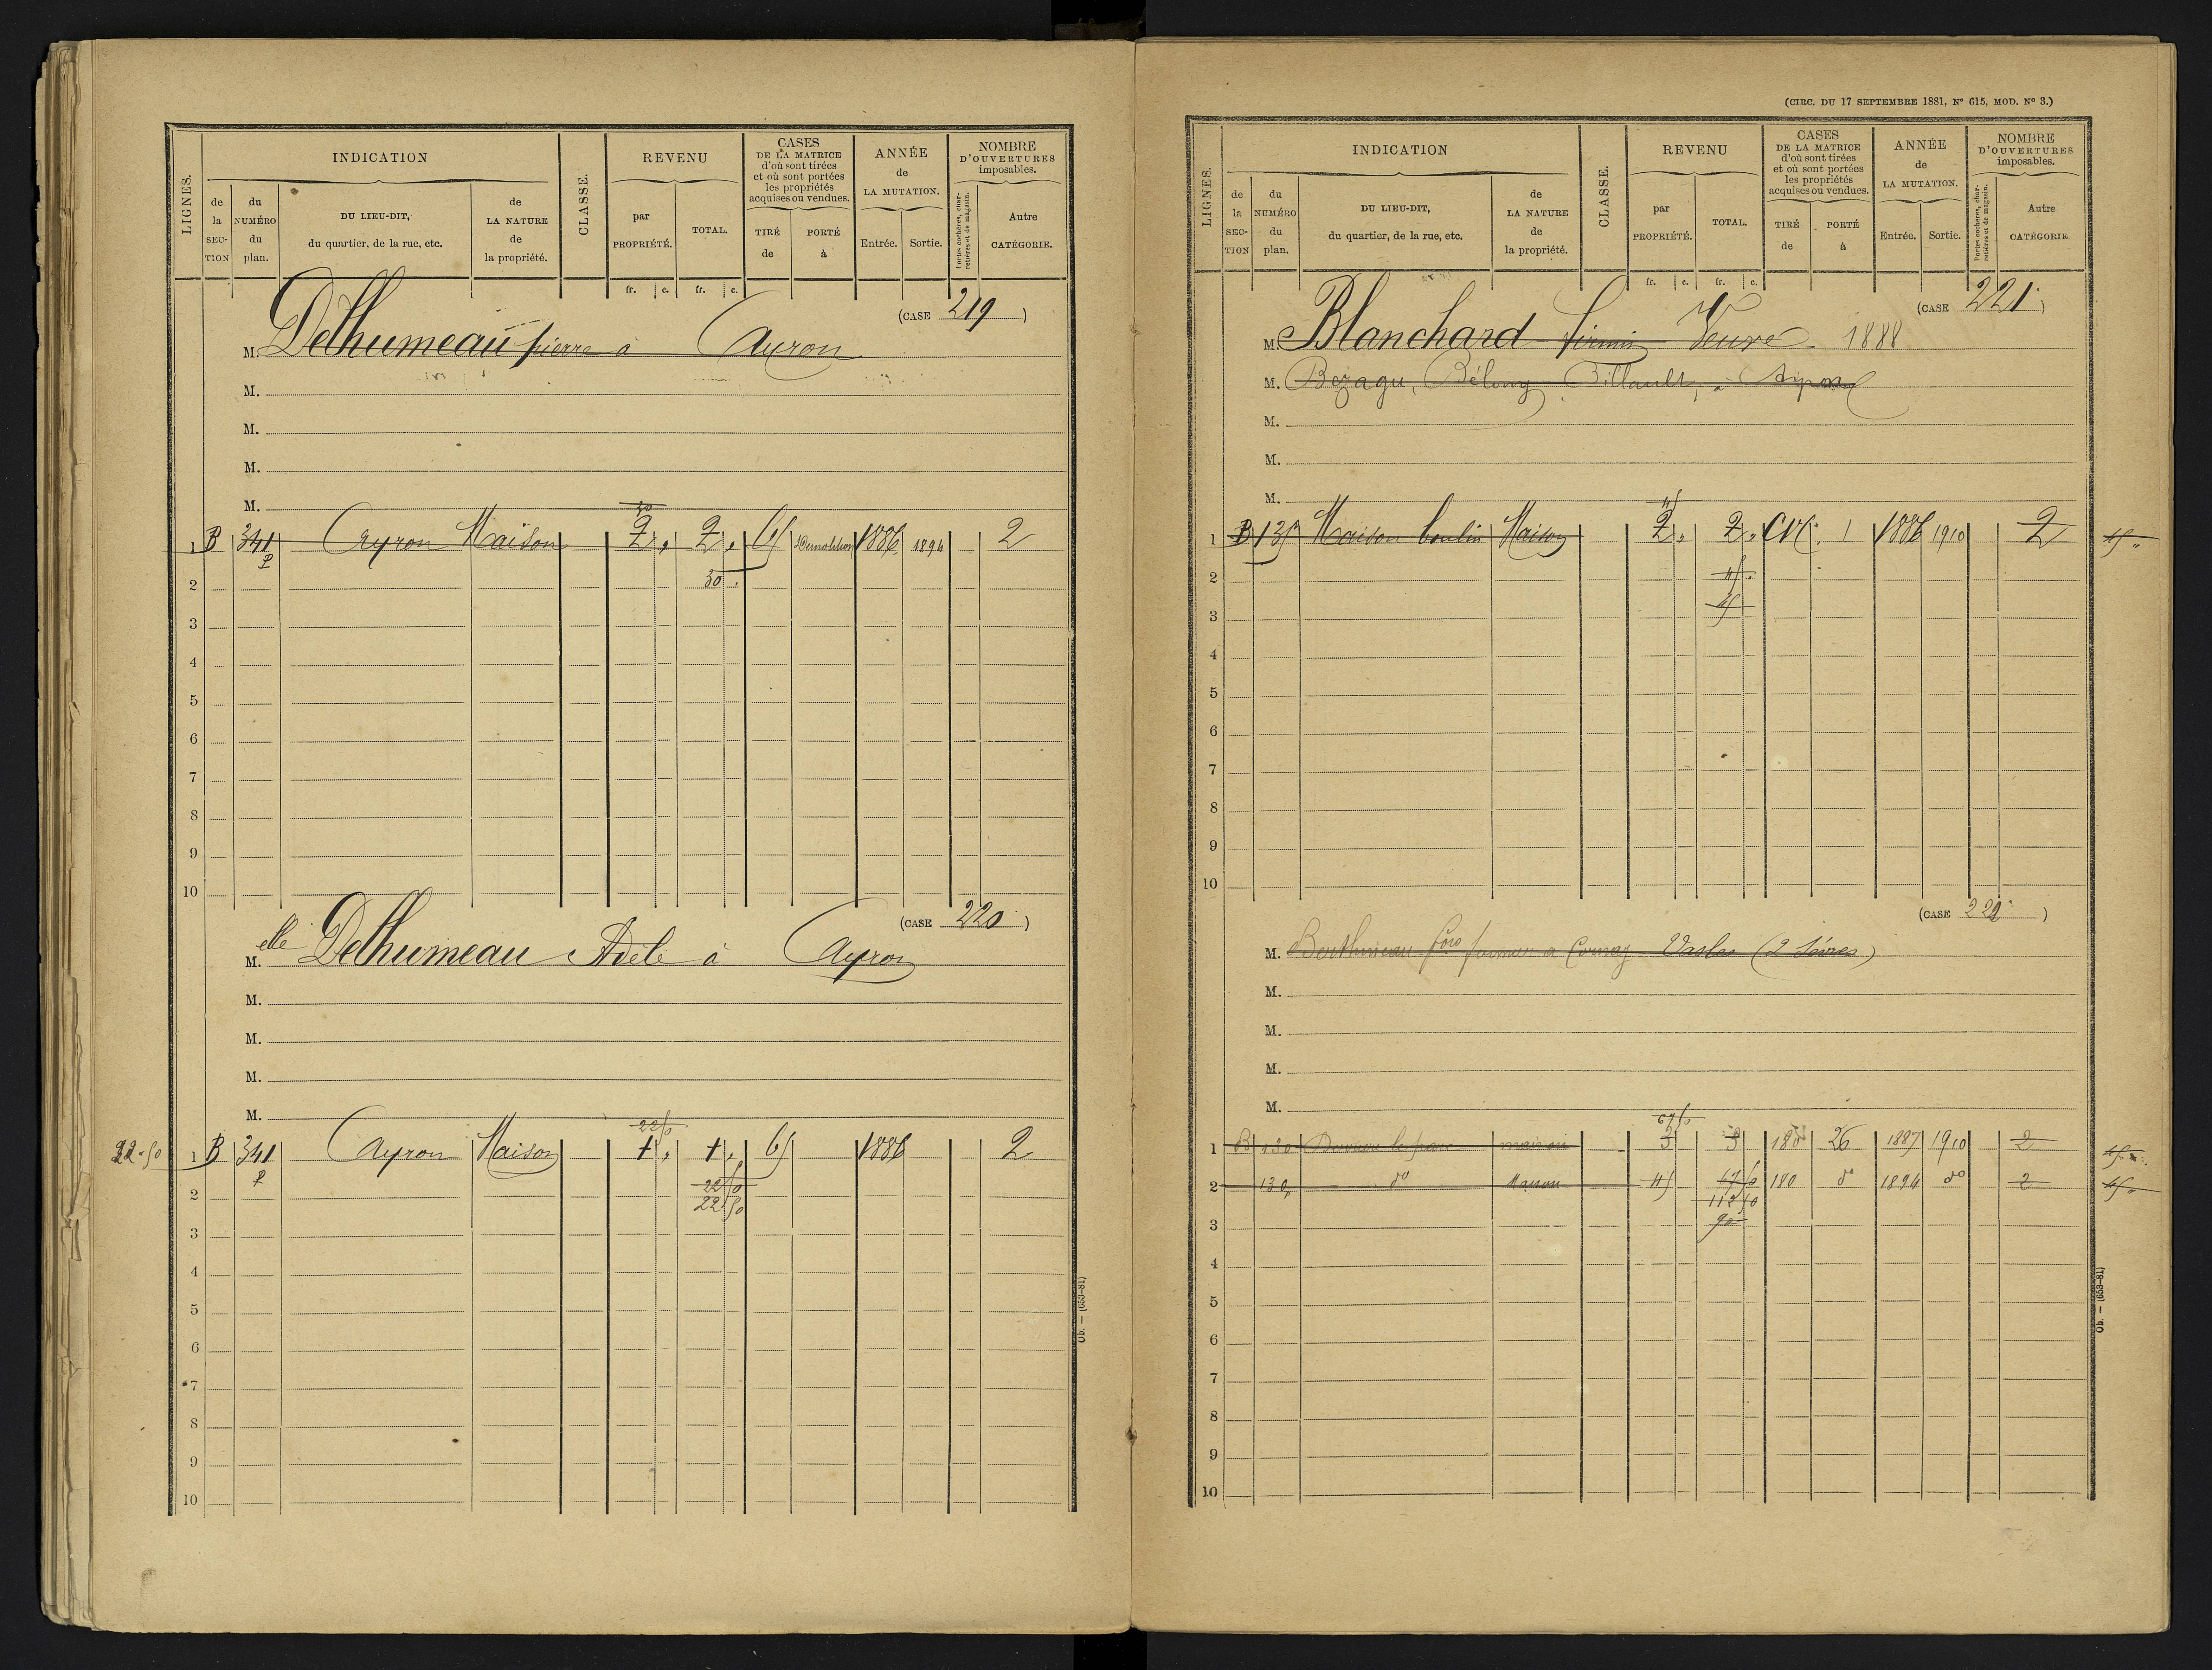 LIGNES.
INDICATION
de la SEC-TION
du NUMÉRO du plan.
DU LIEU-DIT, du quartier, de la rue, etc.
de LA NATURE de la propriété.
CLASSE.
REVENU
par PROPRIÉTÉ.
TOTAL.
CASES DE LA MATRICE d'où sont tirées et où sont portées les propriétés acquises ou vendues.
TIRÉ de
PORTÉ à
ANNÉE de LA MUTATION.
Entrée.
Sortie.
NOMBRE D'OUVERTURES imposables.
Portes cochères, charretières et de magasin.
Autre CATÉGORIE.
fr. c. fr. c.
(CASE 219)
M. Delhumeau pierre à Ayron
M.
M.
M.
M.
30
1 B 341 Ayron Maison 2, 2, 65 Démolition 1886 1894 2
P
2 30
3
4
5
6
7
8
9
10
(CASE 220)
M.elle Delhumeau Adèle à Ayron
M.
M.
M.
M.
22 50
22.50 1 B 341 Ayron Maison 1, 1, 65 1886 2
P
22 50
2 22 50
3
4
5
6
7
8
9
10
Ob. — (653-81)
(CIRC. DU 17 SEPTEMBRE 1881, N° 615, MOD. N° 3.)
LIGNES.
INDICATION
de la SEC-TION
du NUMÉRO du plan.
DU LIEU-DIT, du quartier, de la rue, etc.
de LA NATURE de la propriété.
CLASSE.
REVENU
par PROPRIÉTÉ.
TOTAL.
CASES DE LA MATRICE d'où sont tirées et où sont portées les propriétés acquises ou vendues.
TIRÉ de
PORTÉ à
ANNÉE de LA MUTATION.
Entrée.
Sortie.
NOMBRE D'OUVERTURES imposables.
Portes cochères, charretières et de magasin.
Autre CATÉGORIE.
fr. c. fr. c.
(CASE 221)
M. Blanchard firmin Veuve 1888
M. Bezagu, Billault, à Ayron
M.
M.
M.
45
1 B 135 Maison boulin Maison 2, 2, 1 1886 1910 2 45
2 45
3 45
4
5
6
7
8
9
10
(CASE 222)
M. Berthineau fois fermier à Vasles (2 Sèvres)
M.
M.
M.
M.
67 50
1 B 130 maison 3 3 180 26 1887 1910 2 45
2 130 d° Maison 45 67 50 180 d° 1894 d° 2 45
112 50
3 90
4
5
6
7
8
9
10
Ob. — (653-81)